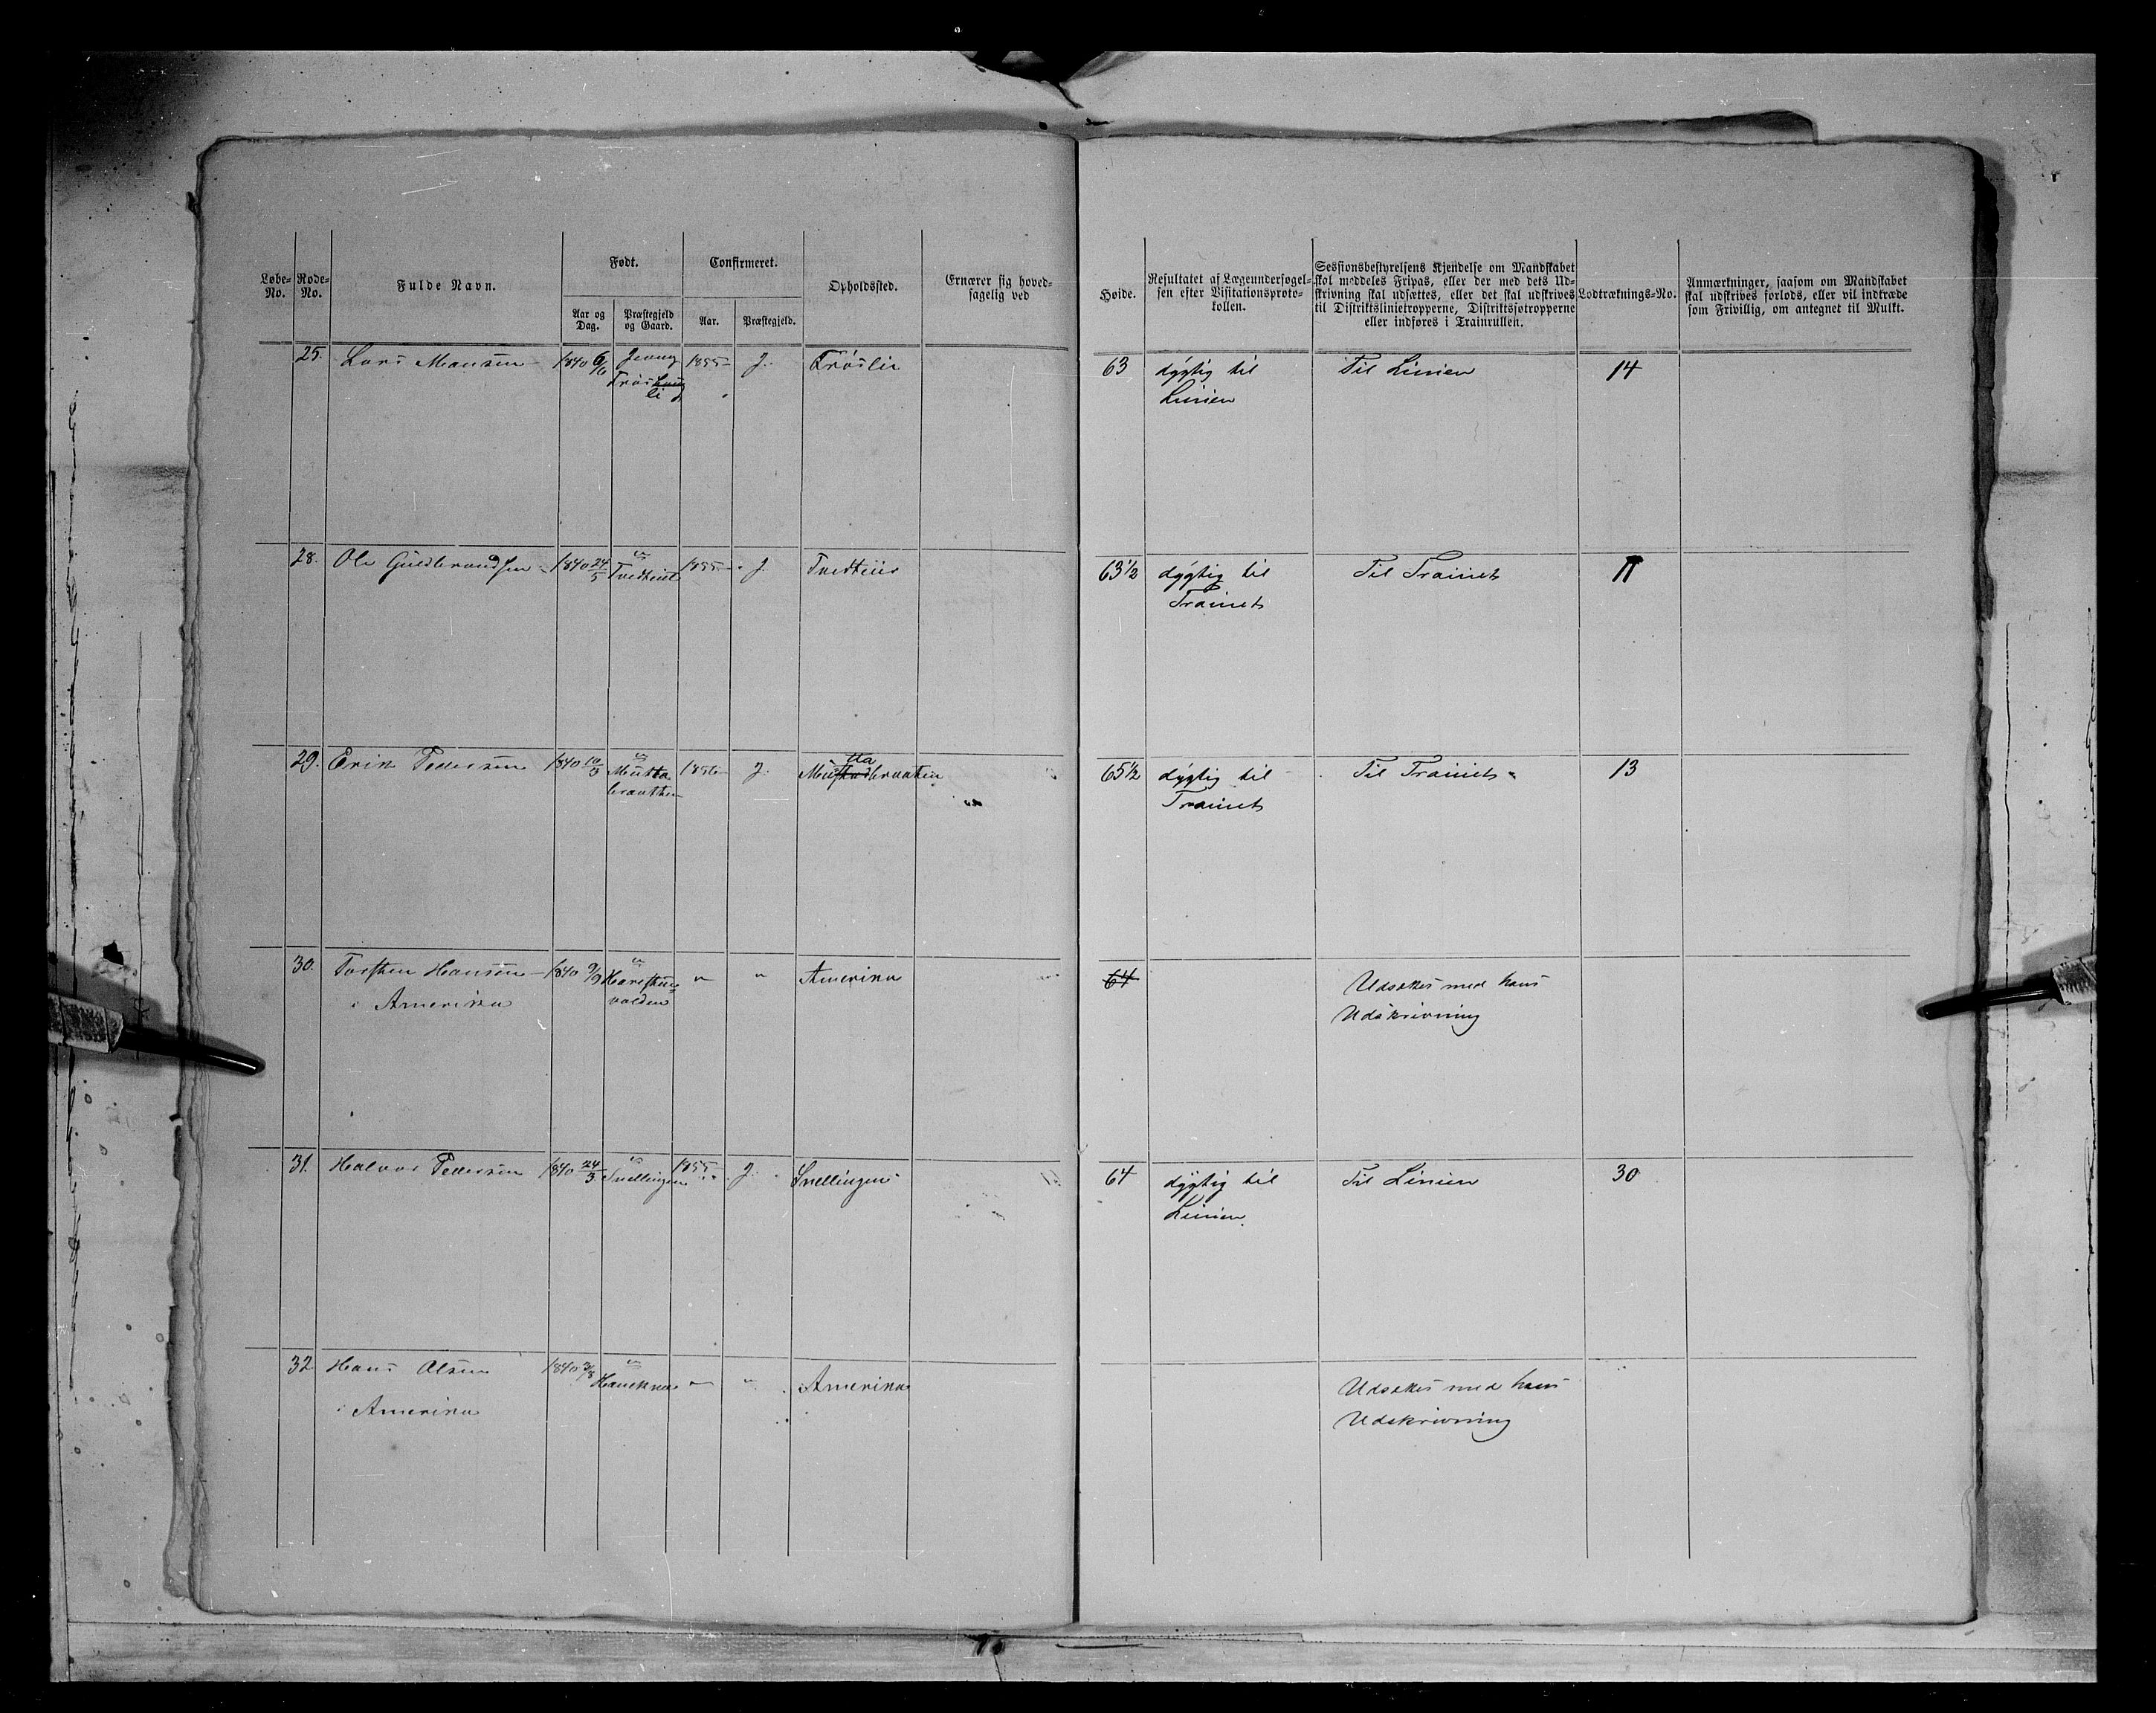 Løbe-No.
Rode-No.
Fulde Navn.
Født.
Aar og Dag.
Præstegjeld og Gaard.
Confirmeret.
Aar.
Præstegjeld.
Opholdssted.
Ernærer sig hoved-
sagelig ved
Høide.
Resultatet af Lægeundersøgel-
sen efter Visitationsproto-
kollen.
Sessionsbestyrelsens Kjendelse om Mandskabet
skal meddeles Fripas, eller der med dets Ud-
skrivning skal udsættes, eller det skal udskrives
til Distriktslinietropperne, Distriktsfotropperne
eller indføres i Trainrullen.
Lodtræknings-No.
Anmærkninger, saasom om Mandskabet
skal udskrives forlods, eller vil indtræde
som Frivillig, om antegnet til Mulkt.
25. Lars Hansen 1840 6/6 Jevng 1855 J. Trøslie 63 dygtig til Til Linien 14
Trøs
li
Linien
28. Ole Guldbrandsen 1840 24/5 " 1855 J. 63 1/2 dygtig til Til Trainet 11
Trainet
29. Erik Pedersen 1840 10/3 " 1856 J. 65 1/2 dygtig til Til Trainet 13
Musta
braathen
Trainet
30. Torsten Hansen 1840 9/9 " " " Amerika 64 Udsættes med hans
i Amerika Udskrivning
31. Halvor Pedersen 1840 24/3 " 1855 J. Snellingen 64 dygtig til Til Linien 30
Snellingen
Linien.
32 Hans Olsen 1840 3/8 " " " Amerika Udsættes med hans
i Amerika Udskrivning